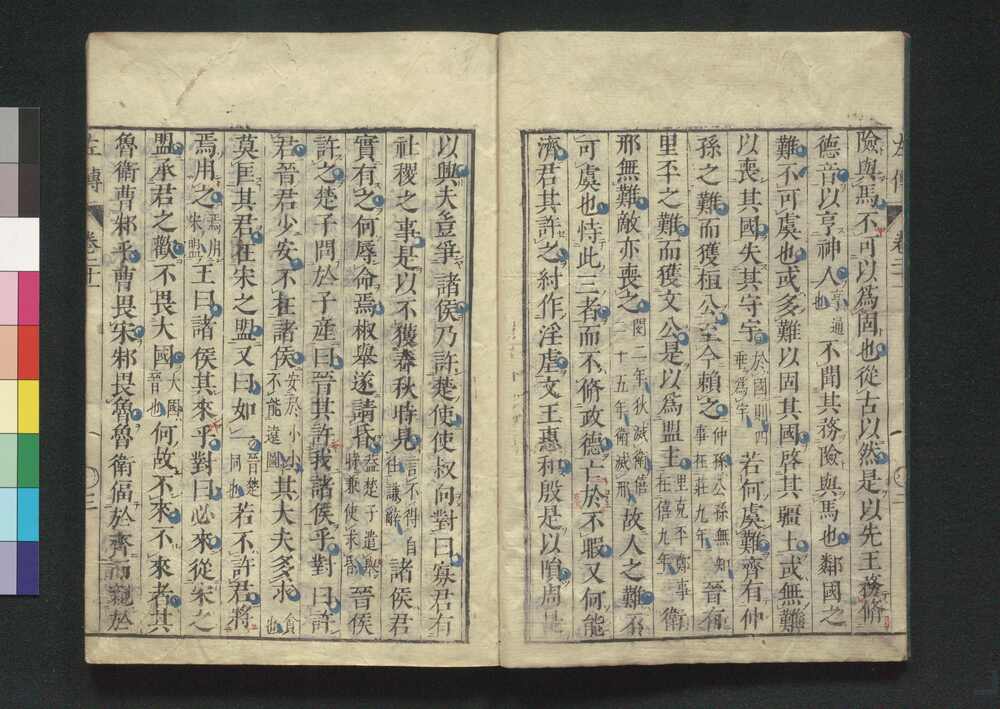 險與馬不可以爲固也從古以然是以先王務脩
德音以亨神人亨通也不聞其務險與馬也鄰國之
難不可虞也或多難以固其國啓其疆土或無難
以喪其國失其守宇於國則四垂爲宇若何虞難齊有仲
孫之難而獲桓公至今賴之仲孫公孫無知事在莊九年晉有
里丕之難而獲文公是以爲盟主里克丕鄭事在僖九年衛
邢無難敵亦喪之閔二年狄滅衛僖二十五年衛滅邢故人之難不
可虞也恃此三者而不脩政德亡於不暇又何能
濟君其許之紂作淫虐文王惠和殷是以隕周是
左傳 卷二十一
以興夫豈爭諸侯乃許楚使使叔向對曰寡君有
社稷之事是以不獲春秋時見言不得自往謙辭諸侯君
實有之何辱命焉椒舉遂請昏蓋楚子遣舉時兼使求昏晉侯
許之楚子問於子產曰晉其許我諸侯乎對曰許
君晉君少安不在諸侯安於小小不能遠圖其大夫多求貪也
莫匡其君在宋之盟又曰如一晉楚同也若不許君將
焉用之焉用宋盟王曰諸侯其來乎對曰必來從宋之
盟承君之歡不畏大國大國晉也何故不來不來者其
魯衛曹邾乎曹畏宋邾畏魯魯衛偪於齊而親於
左傳 卷二十一